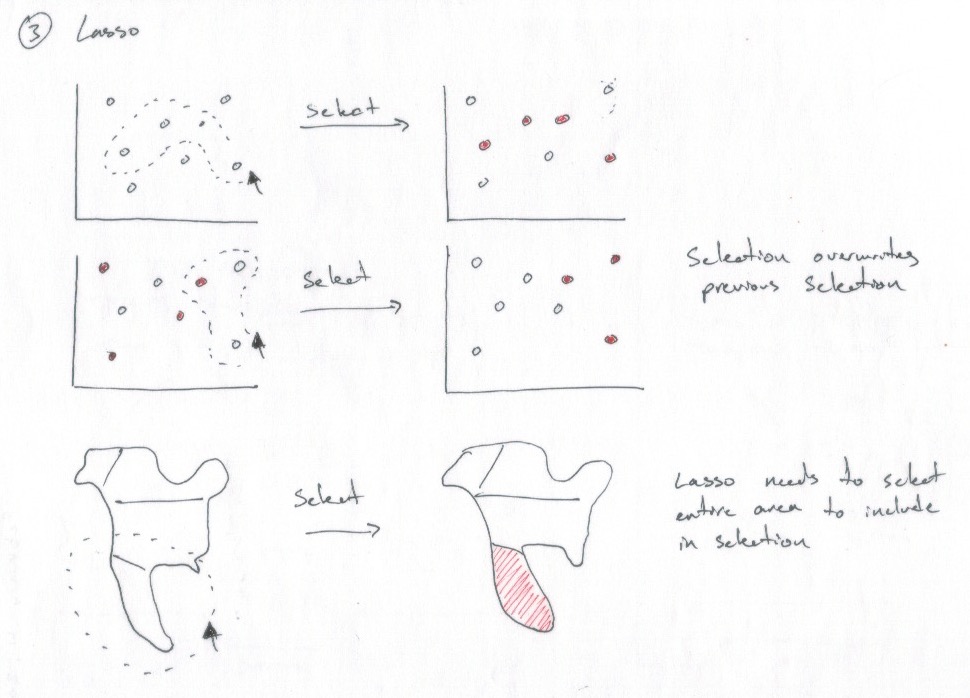 ③ Lasso
Select
Select
Selection overwrites
previous selection
Select
Lasso needs to select
entire area to include
in selection